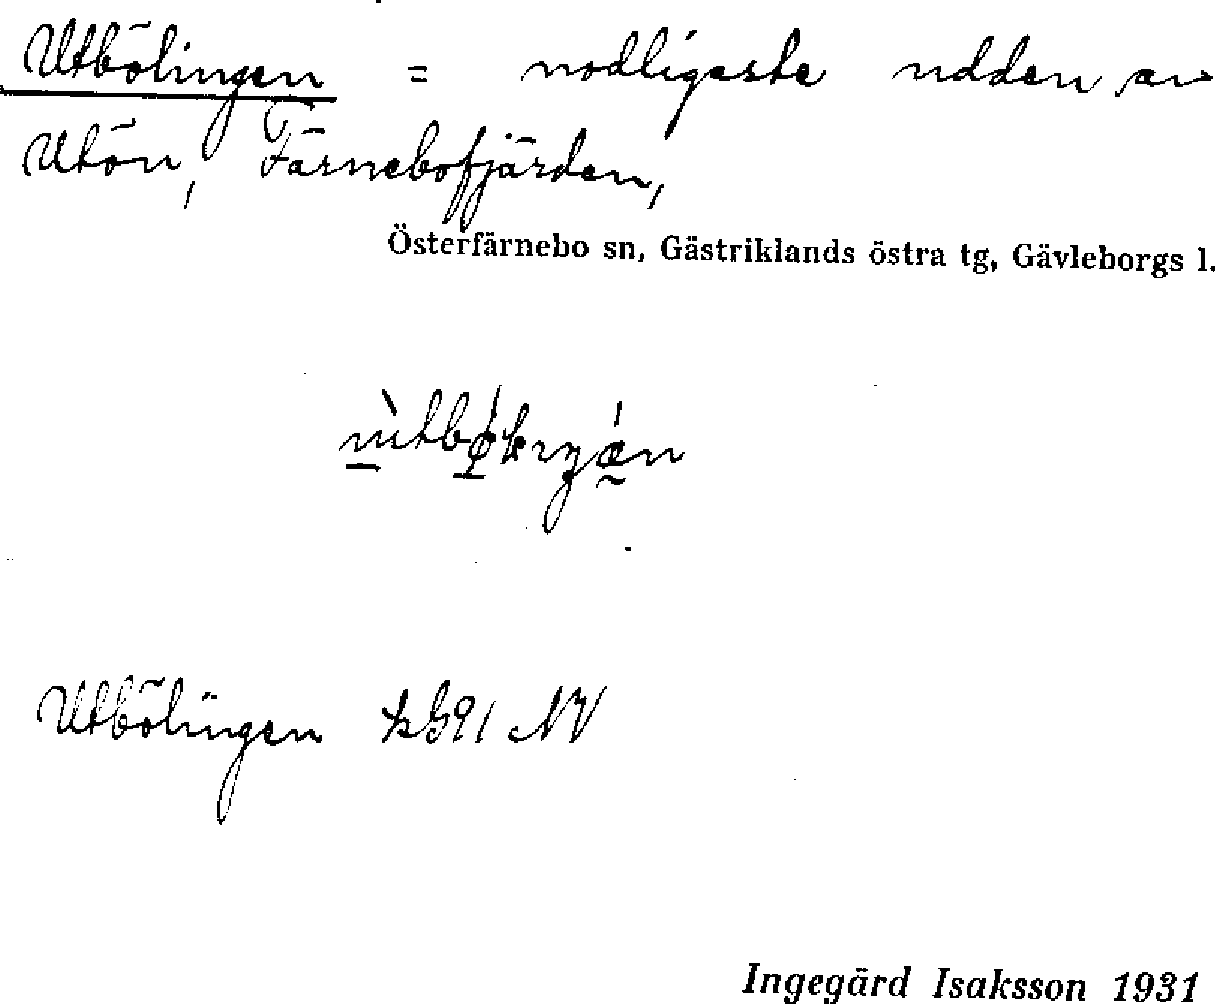 Utbölingen = nodligaste udden av
Utön, Färnebofjärden,
Österfärnebo sn, Gästriklands östra tg, Gävleborgs l.
Utbölingen NV
Ingegärd Isaksson 1931